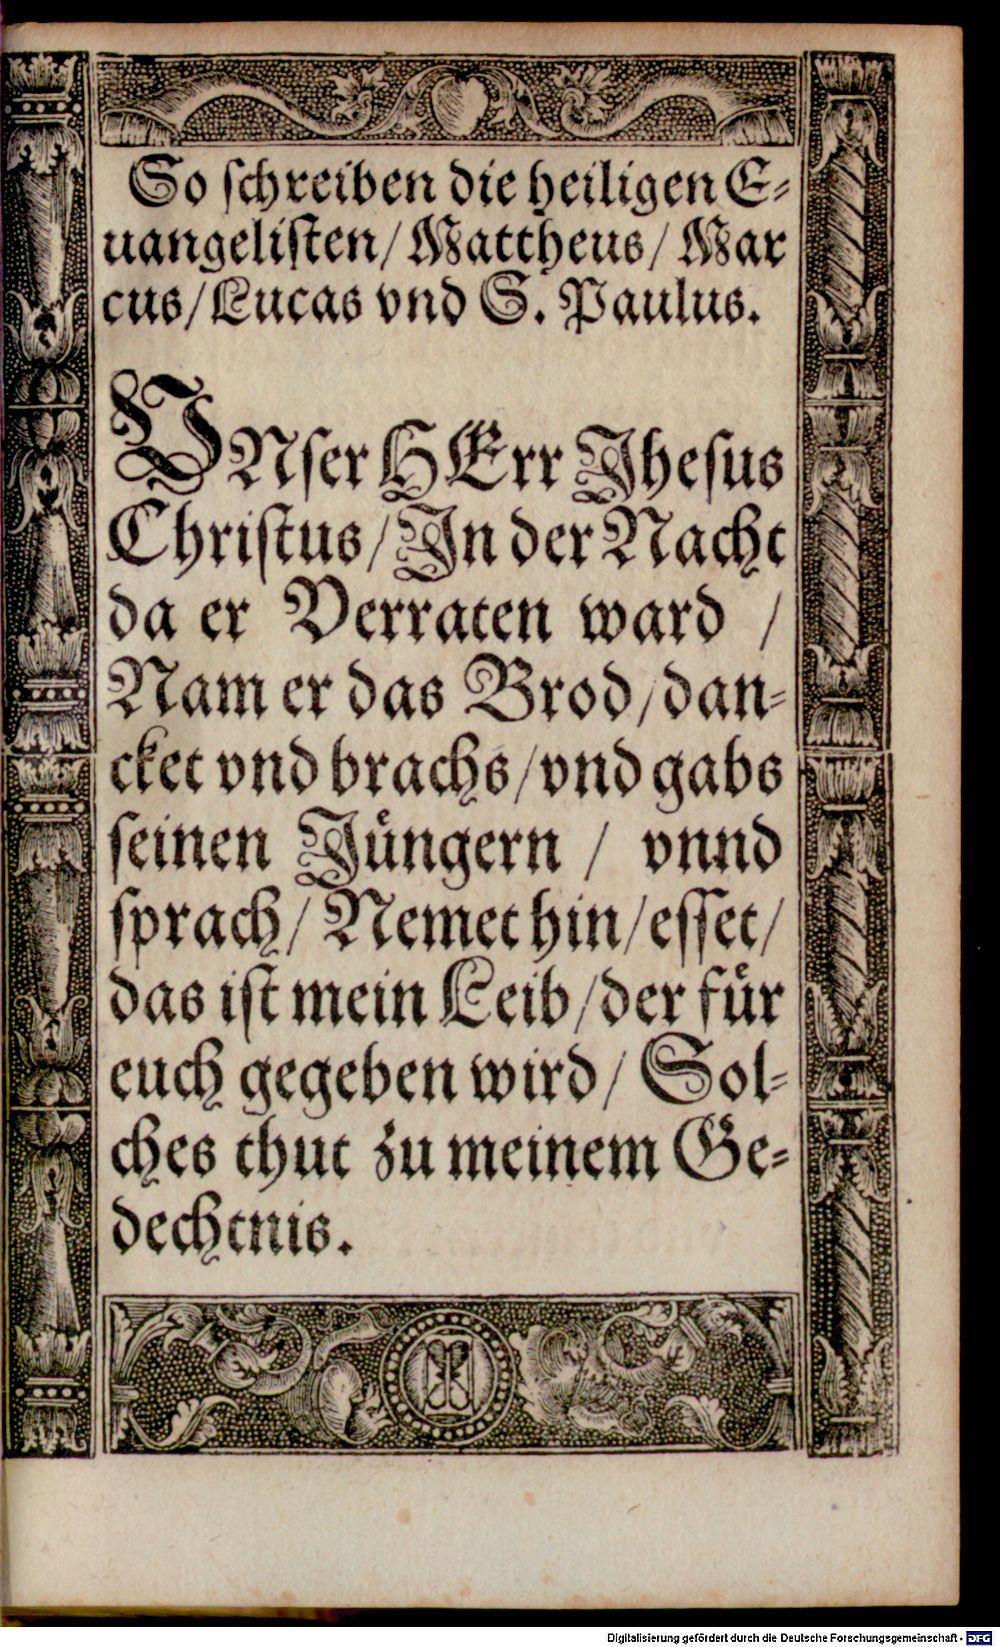 So ſchreiben die heiligen E⸗
uangeliſten/ Mattheus/ Mar
cus/ Lucas vnd S. Paulus.
VNſer HErr Jheſus
Chriſtus/ Jn der Nacht
da er Verraten ward /
Nam er das Brod/ dan⸗
cket vnd brachs/ vnd gabs
ſeinen Jüngern / vnnd
ſprach/ Nemet hin/ eſſet/
das iſt mein Leib/ der für
euch gegeben wird/ Sol⸗
ches thut zu meinem Ge⸗
dechtnis.
Digitalisierung gefördert durch die Deutsche Forschungsgemeinschaft - DFG